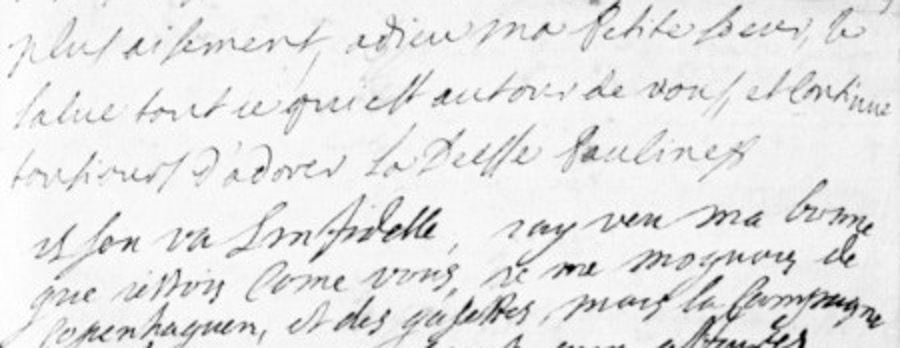 plus aisement, adieu ma petite soeur, je
salue tout ce qui est autour de vous, et continue
tousiours d'adorer la Deesse Pauline
il s'en va L'infidelle, j'ay veu ma bonne
que j'estois come vous, je me moquois de
Copenhaguen, et des gasettes, mais la Campagne